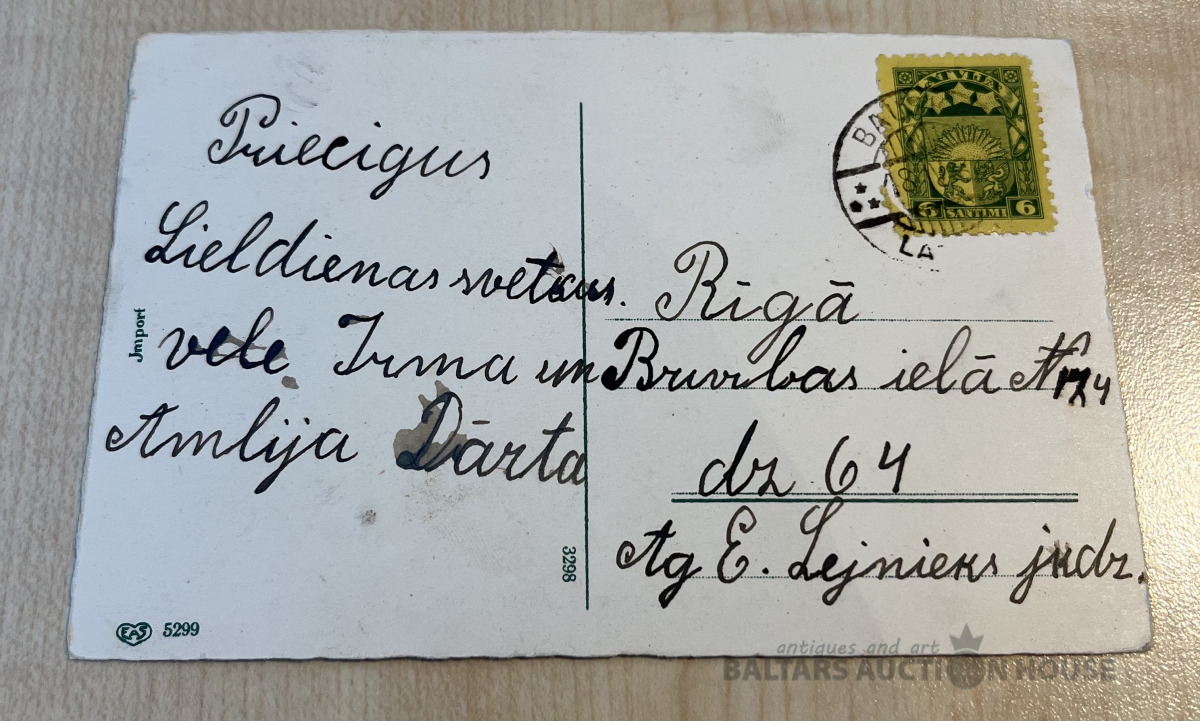 Priecigus
Lieldienas svetkus.
vēle Irma un
Amlija Dārta
Import
3298
EAS 5299
LATVIJA
6 SANTIMI 6
BAL
LA
Rīgā
Brivibas ielā №
dz 64
Ag E. Lejnieks jkdz.
antiques and art
BALTARS AUCTION HOUSE